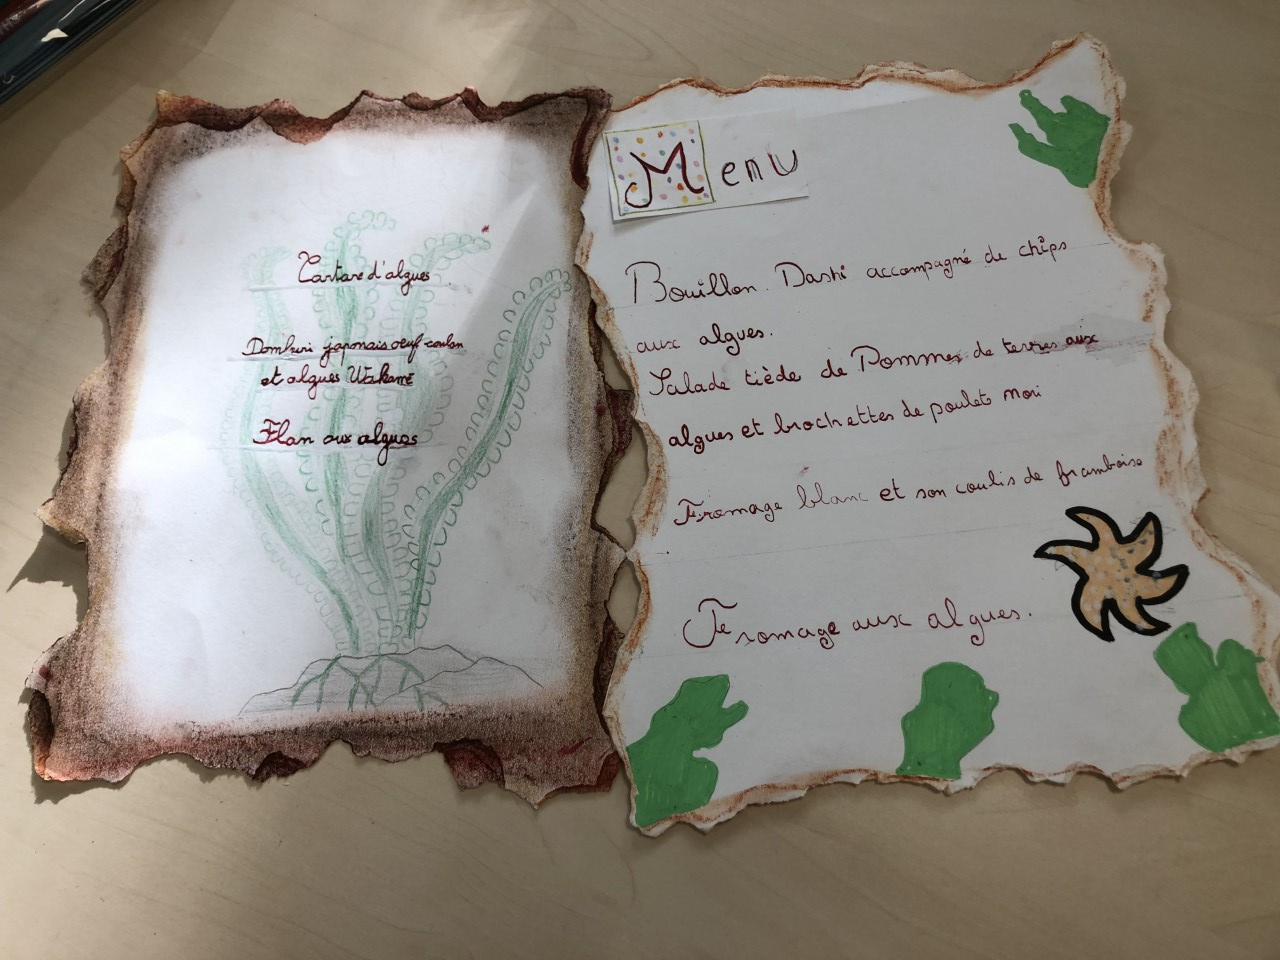 Tartare d'algues
Domburi japonais oeuf-coulon
et algues Wakamé
Flan aux algues
Menu
Bouillon Dashi accompagné de chips
aux algues.
Salade tiède de Pommes de terres aux
algues et brochettes de poulet mori
Fromage blanc et son coulis de framboise
Fromage aux algues.